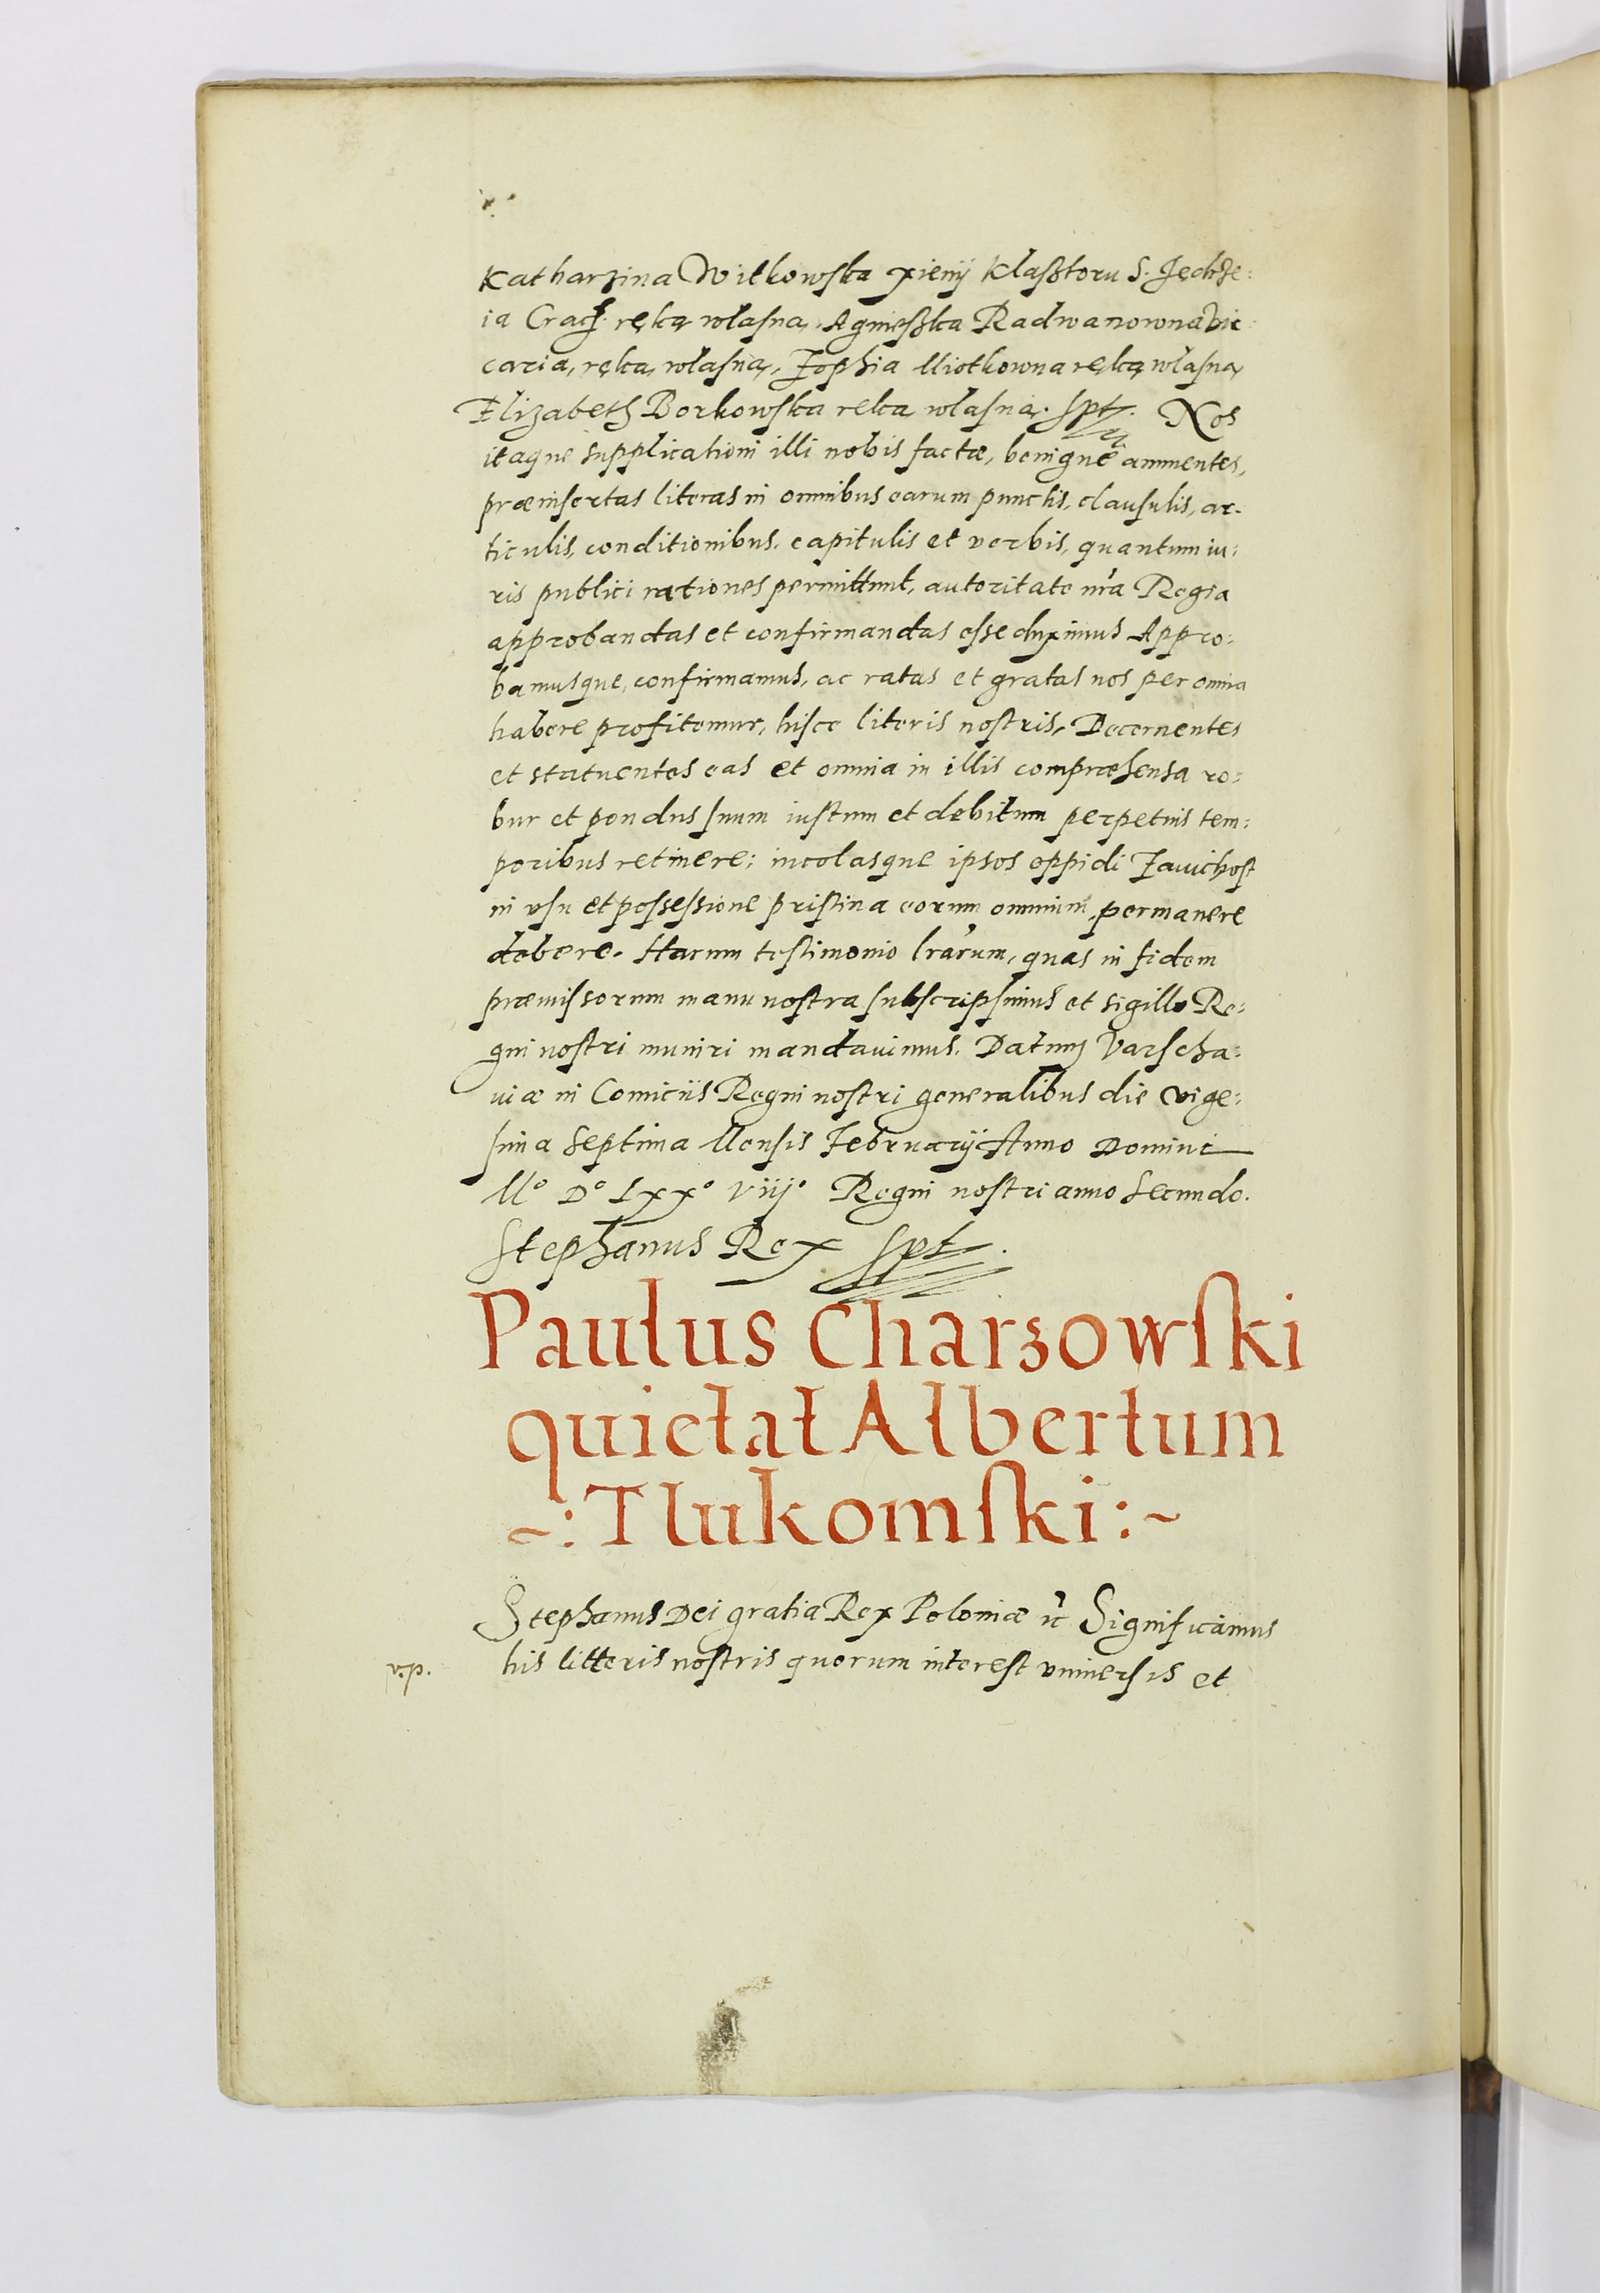 Katharzina Witkowska xienij Klasztoru S. Jędrze:
ia Crach. ręką własną, Agnieszka Radwanowna Vic:
caria, ręką własną, Zophia Miotkowna ręką własną
Elizabeth Borkowska reką własną. spt. Nos
itaque supplicationi illi nobis factæ, benigne annuentes,
præinsertas literas in omnibus earum punctis, clausulis, ar-
ticulis, conditionibus, capitulis et verbis, quantum iu:
ris publici rationes permittunt, autoritate nrã Regia
approbandas et confirmandas esse duximus Appro:
bamusque, confirmamus, ac ratas et gratas nos per omnia
habere profitemur, hisce literis nostris, Decernentes
et statuentes eas et omnia in illis compræhensa ro:
bur et pondus suum iustum et debitum perpetuis tem:
poribus retinere; incolasque ipsos oppidi Zauichost
in vsu et possessione pristina eorum omnium permanere
debere. Harum testimonio lrarum, quas in fidem
præmissorum manu nostra subscripsimus et sigillo Re:
gni nostri muniri mandauimus. Datum Varscha:
uiæ in Comiciis Regni nostri generalibus die vige:
sima Septima Mensis Februarij Anno Domini
Mº Dº Lxxº viijº Regni nostri anno Secundo.
Stephanus Rex spt.
Paulus Charzowski
quietat Albertum
~: Tlukomski :~
Stephanus Dei gratia Rex Poloniæ ñc Significamus
v.p. his litteris nostris quorum interest vniuersis et